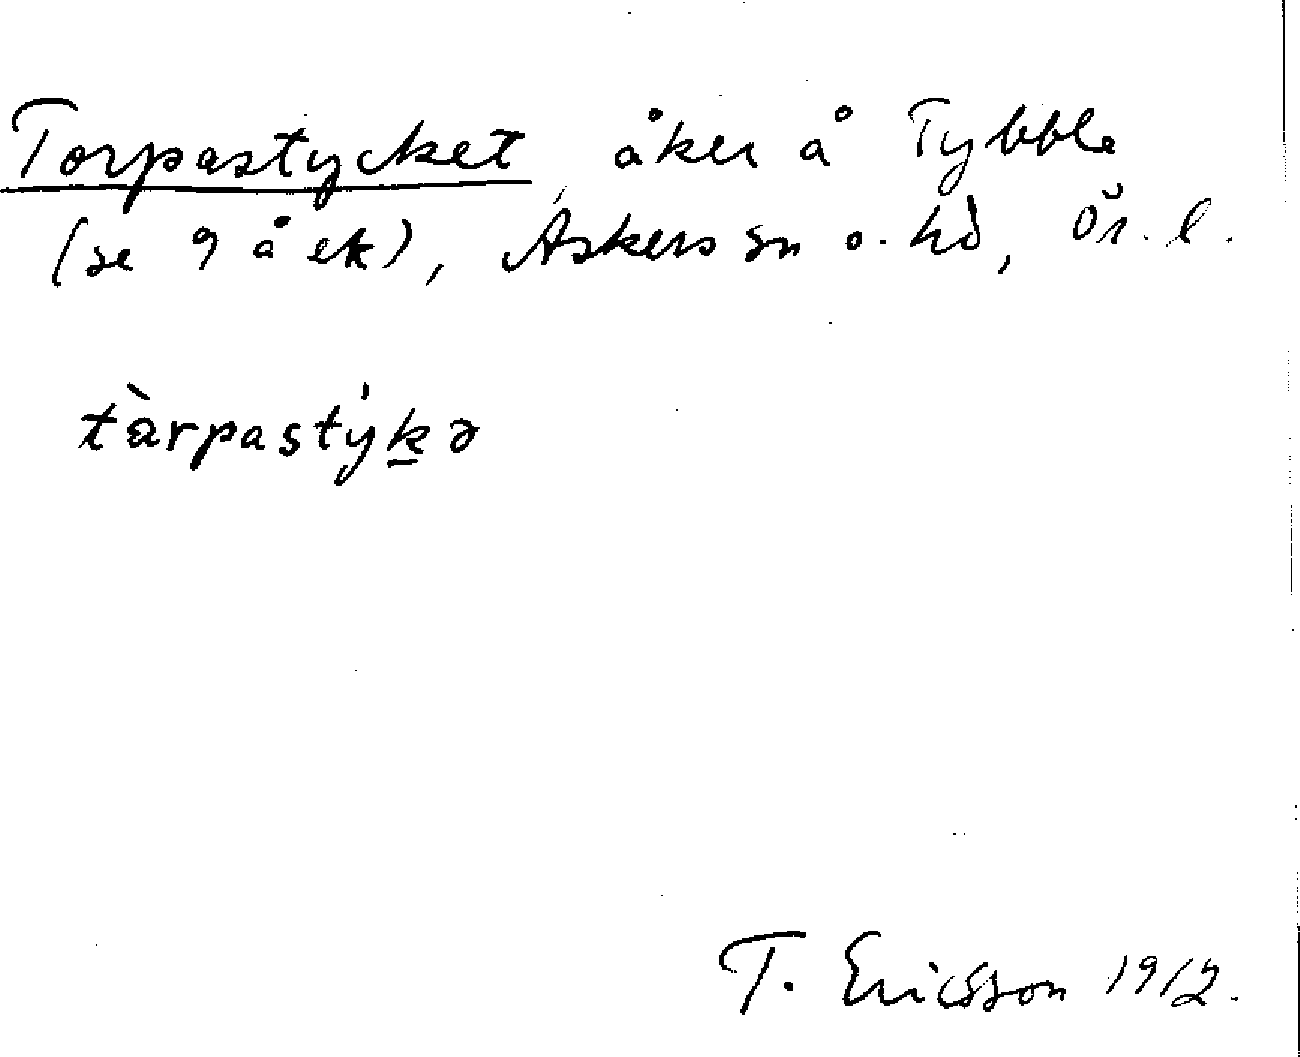 Torpastycket, åker å Tybble
(se 9 å ek), Askers sn o. hd, Ör. l.
tàrpastýkə
T. Ericsson 1912.